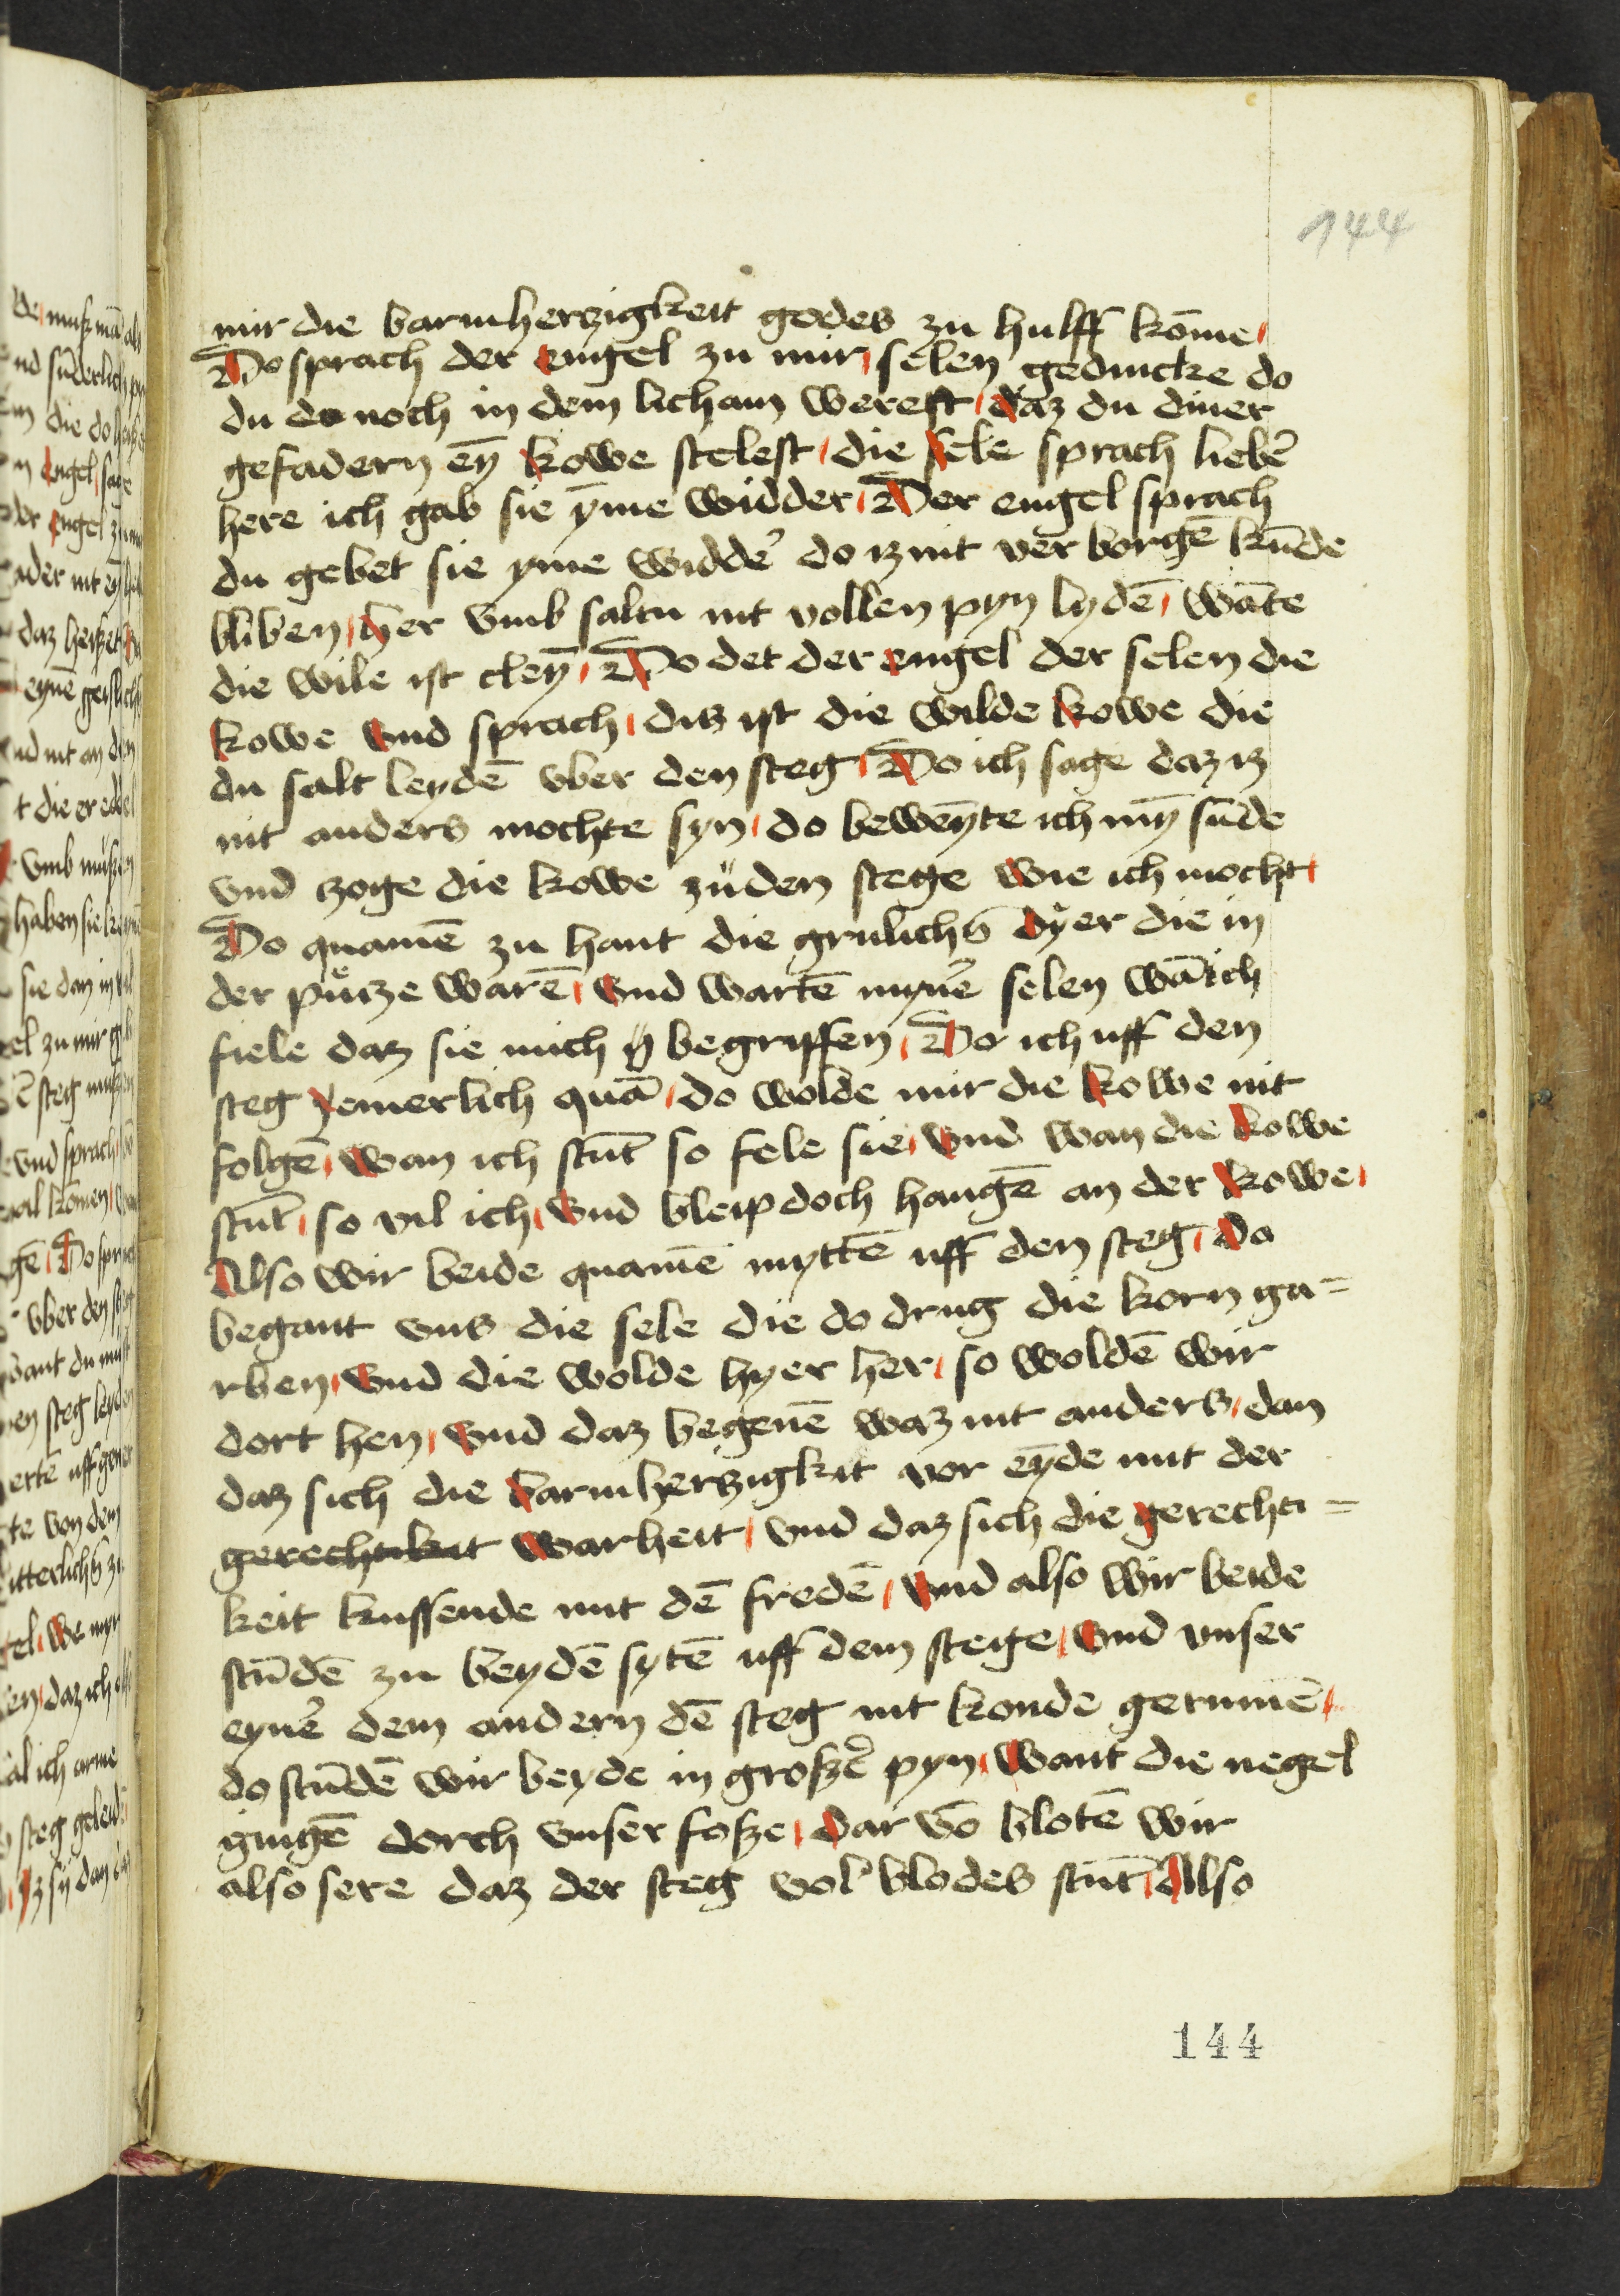 144
mir die barmherzigkeit godes zu hulff kōme
Do sprach der engel zu mir selen gedencke do
du do noch in dem licham werest daz du diner
gefadern eȳ kowe stelest die sele sprach liebē
here ich gab sie ẏme widder Der engel sprach
du gebet sie yme widdē do iz nit ver borgē kūde
bliben her vmb saltu nit vollen pyn lydē wāte
die wile ist cleȳ Do det der engel der selen die
kowe vnd sprach dis ist die wilde kowe die
du salt leydē vber den steg Do ich sage daz iz
nit anders mochte syn do beweȳte ich mȳ sūde
vnd zoge die kowe zu den stege wie ich mocht
Do quamē zu hant die grulichs dyer die in
der putze warē vnd wartē mynē selen wā ich
fiele daz sie mich begriffen Do ich uff den
steg yemerlich quā do wolde mir die kowe nit
folgē wan ich stūt so fele sie vnd wan die kowe
stūt so vil ich vnd bleip doch hangē an der kowe
Also wir beide quamē myttē uff den steg do
begant vns die sele die do drug die korn ga=
rben vnd die wolde hyer her so woldē wir
dort hen vnd daz begenē waz nit anders dan
daz sich die barmherzigkit vor eȳde mit der
gerechtikeit warheit vnd daz sich die gerechti=
keit kussende mit dē fredē vnd also wir beide
stūdē zu beydē sytē uff dem stege vnd vnser
eynē dem andern dē steg nit konde gerumē
do stūdē wir beyde in groszē pyn want die negel
gingē dorch vnser fosze dar vō blotē wir
also sere daz der steg vol blodes stūt Also
144